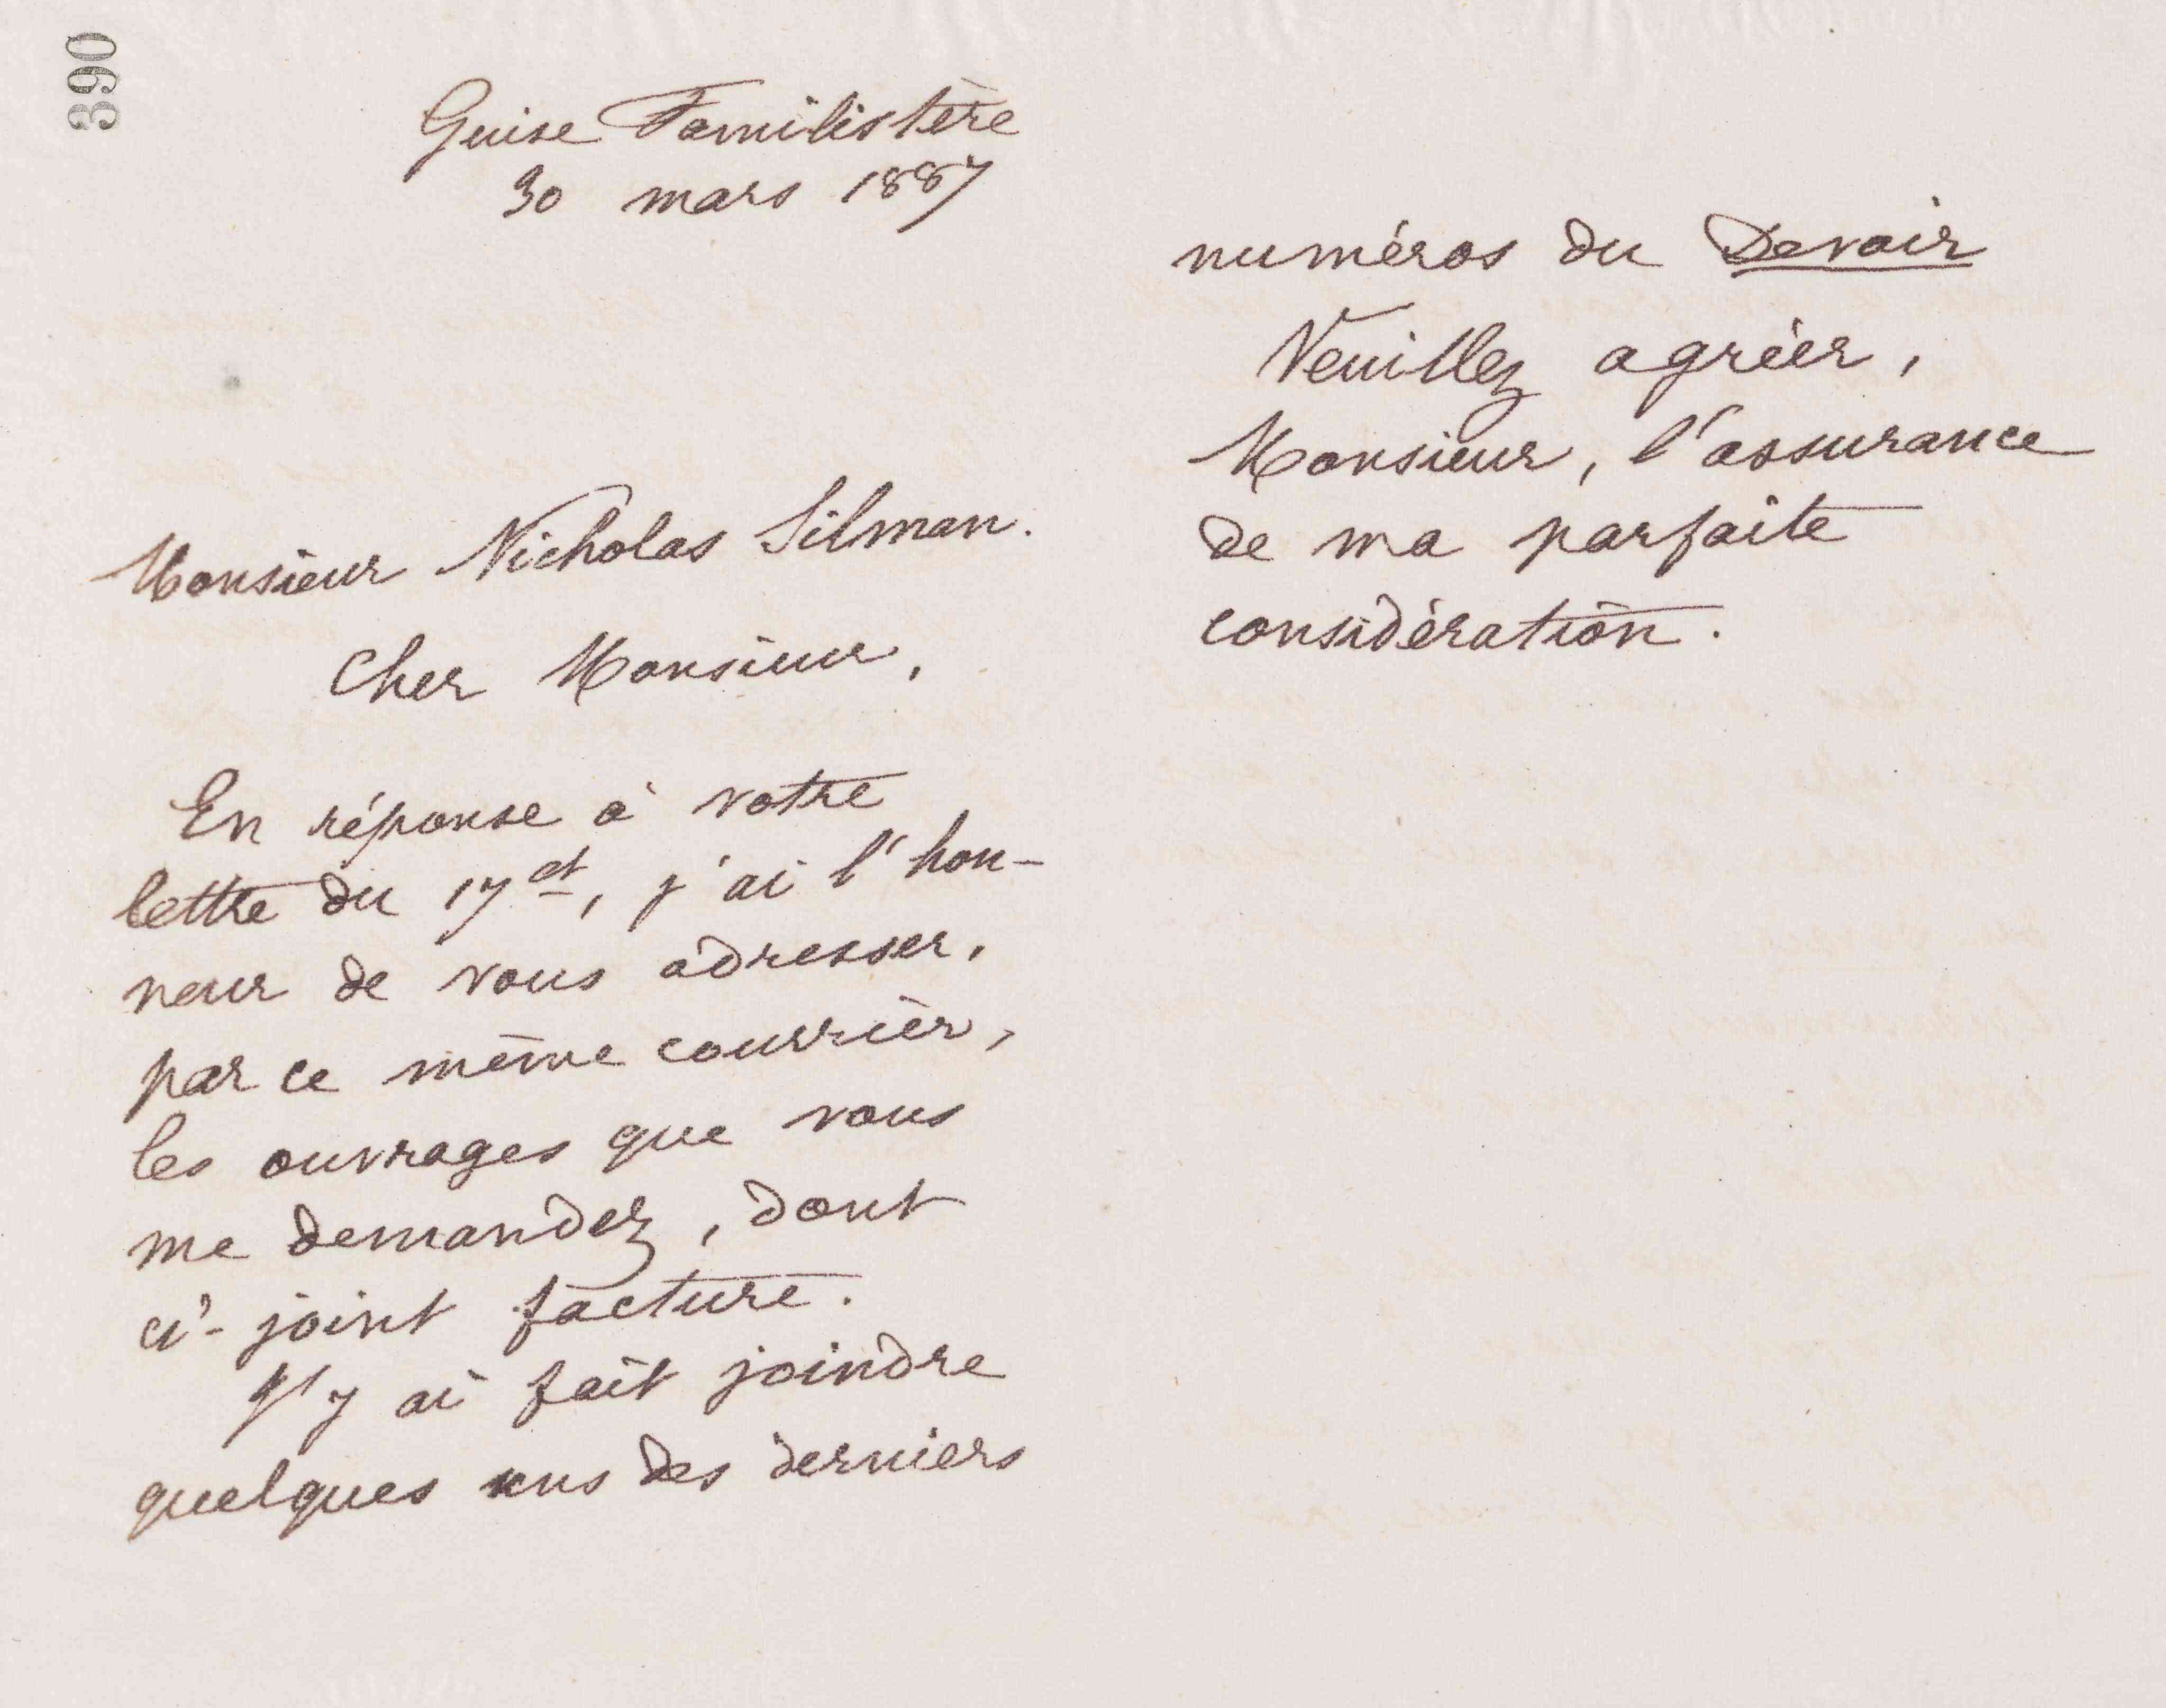 390
Guise Familistère
30 mars 1887
Monsieur Nicholas Silman.
Cher Monsieur,
En réponse à votre
lettre du 17 ct, j'ai l'hon-
neur de vous adresser,
par ce même courrier,
les ouvrages que vous
me demandez, dont
ci-joint facture.
J'y ai fait joindre
quelques uns des derniers
numéros du Devoir
Veuillez agréer,
Monsieur, l'assurance
de ma parfaite
considération.